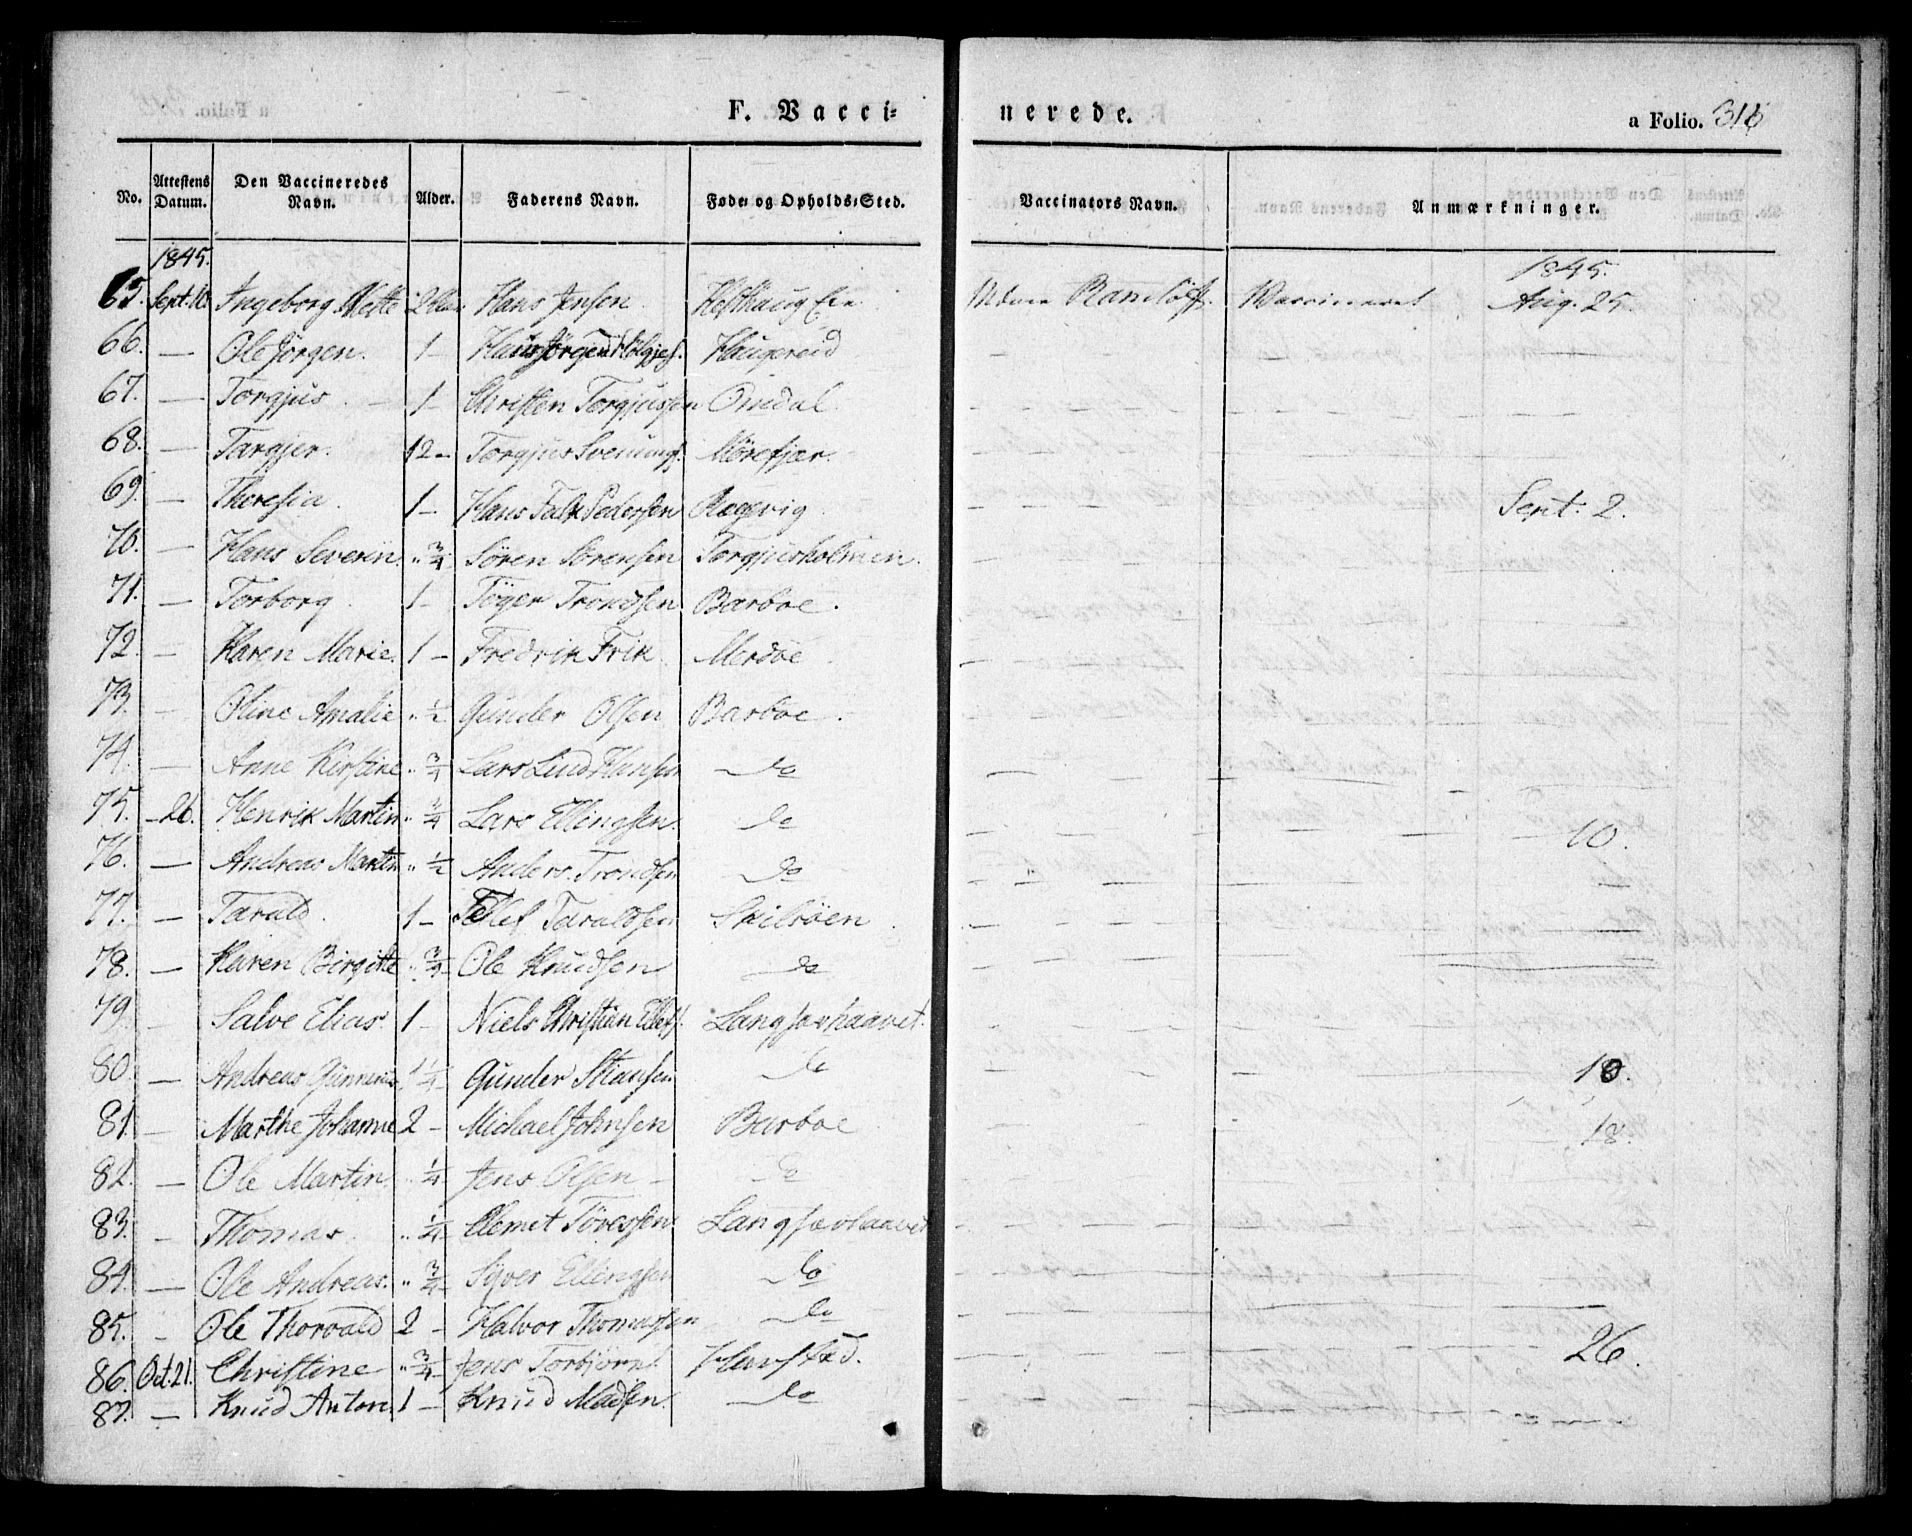 F. Vacci- nerede. a Folio. 316
No. Attestens Datum. Den Vaccineredes Navn. Alder. Faderens Navn. Føde- og Opholds-Sted. Vaccinators Navn. Anmærkninger.
1845. 1845.
65. Sept. 10. Ingeborg Mette 2 Hans Jensen Vaccineret Aug. 25.
66. — Ole Jörgen. 1 — Haugereid
67. — Torgjus 1 — Christen Torgjussen Omdal.
68. — Targjer. 12 — Torgjus Svenungs. Mörefjær.
69. — Theresia. 1 — Hans Falk Pedersen Rægevig Sept. 2.
70. — Hans Severin. " 3/4 Sören Sörensen Torgjusholmen.
71. — Torborg 1 — Töger Trondsen Barboe.
72. — Karen Marie. 1 — Fredrik Frik Merdöe
73. — Oline Amalie " 1/2 Gunder Olsen Barboe.
74. — Anne Kirstine " 3/4 Lars Lind Hansen do
75. — 26. Henrik Martin " 3/4 Lars Ellingsen. do 10.
76. — Andreas Martin " 1/2 Anders Trondsen do
77. — Tarald. 1 — Tellef Taraldsen Skilsöen
78. — Karen Birgitte " 3/4 Ole Knudsen do
79. — Salve Elias. 1 — Niels Christian Ellefs. Langsævhaavet.
80. — Andreas Gunnerius 1 1/4 Gunder do 18.
81. — Marthe Johanne 2 — Michael Johnsen Barboe 18.
82. — Ole Martin. " 1/4 Jens Olsen — do
83. — Thomas. " 1/4 Clemet Töressen Langsævhaavet
84. — Ole Andreas. " 3/4 Syver Ellingsen do
85. — Ole Thorvald 2 — Halvor Thomassen do
86. Oct. 21. Christine " 3/4 Jens Torbjörns. Harstad. 26.
87. — Knud Anton 1 — Knud Madsen. do